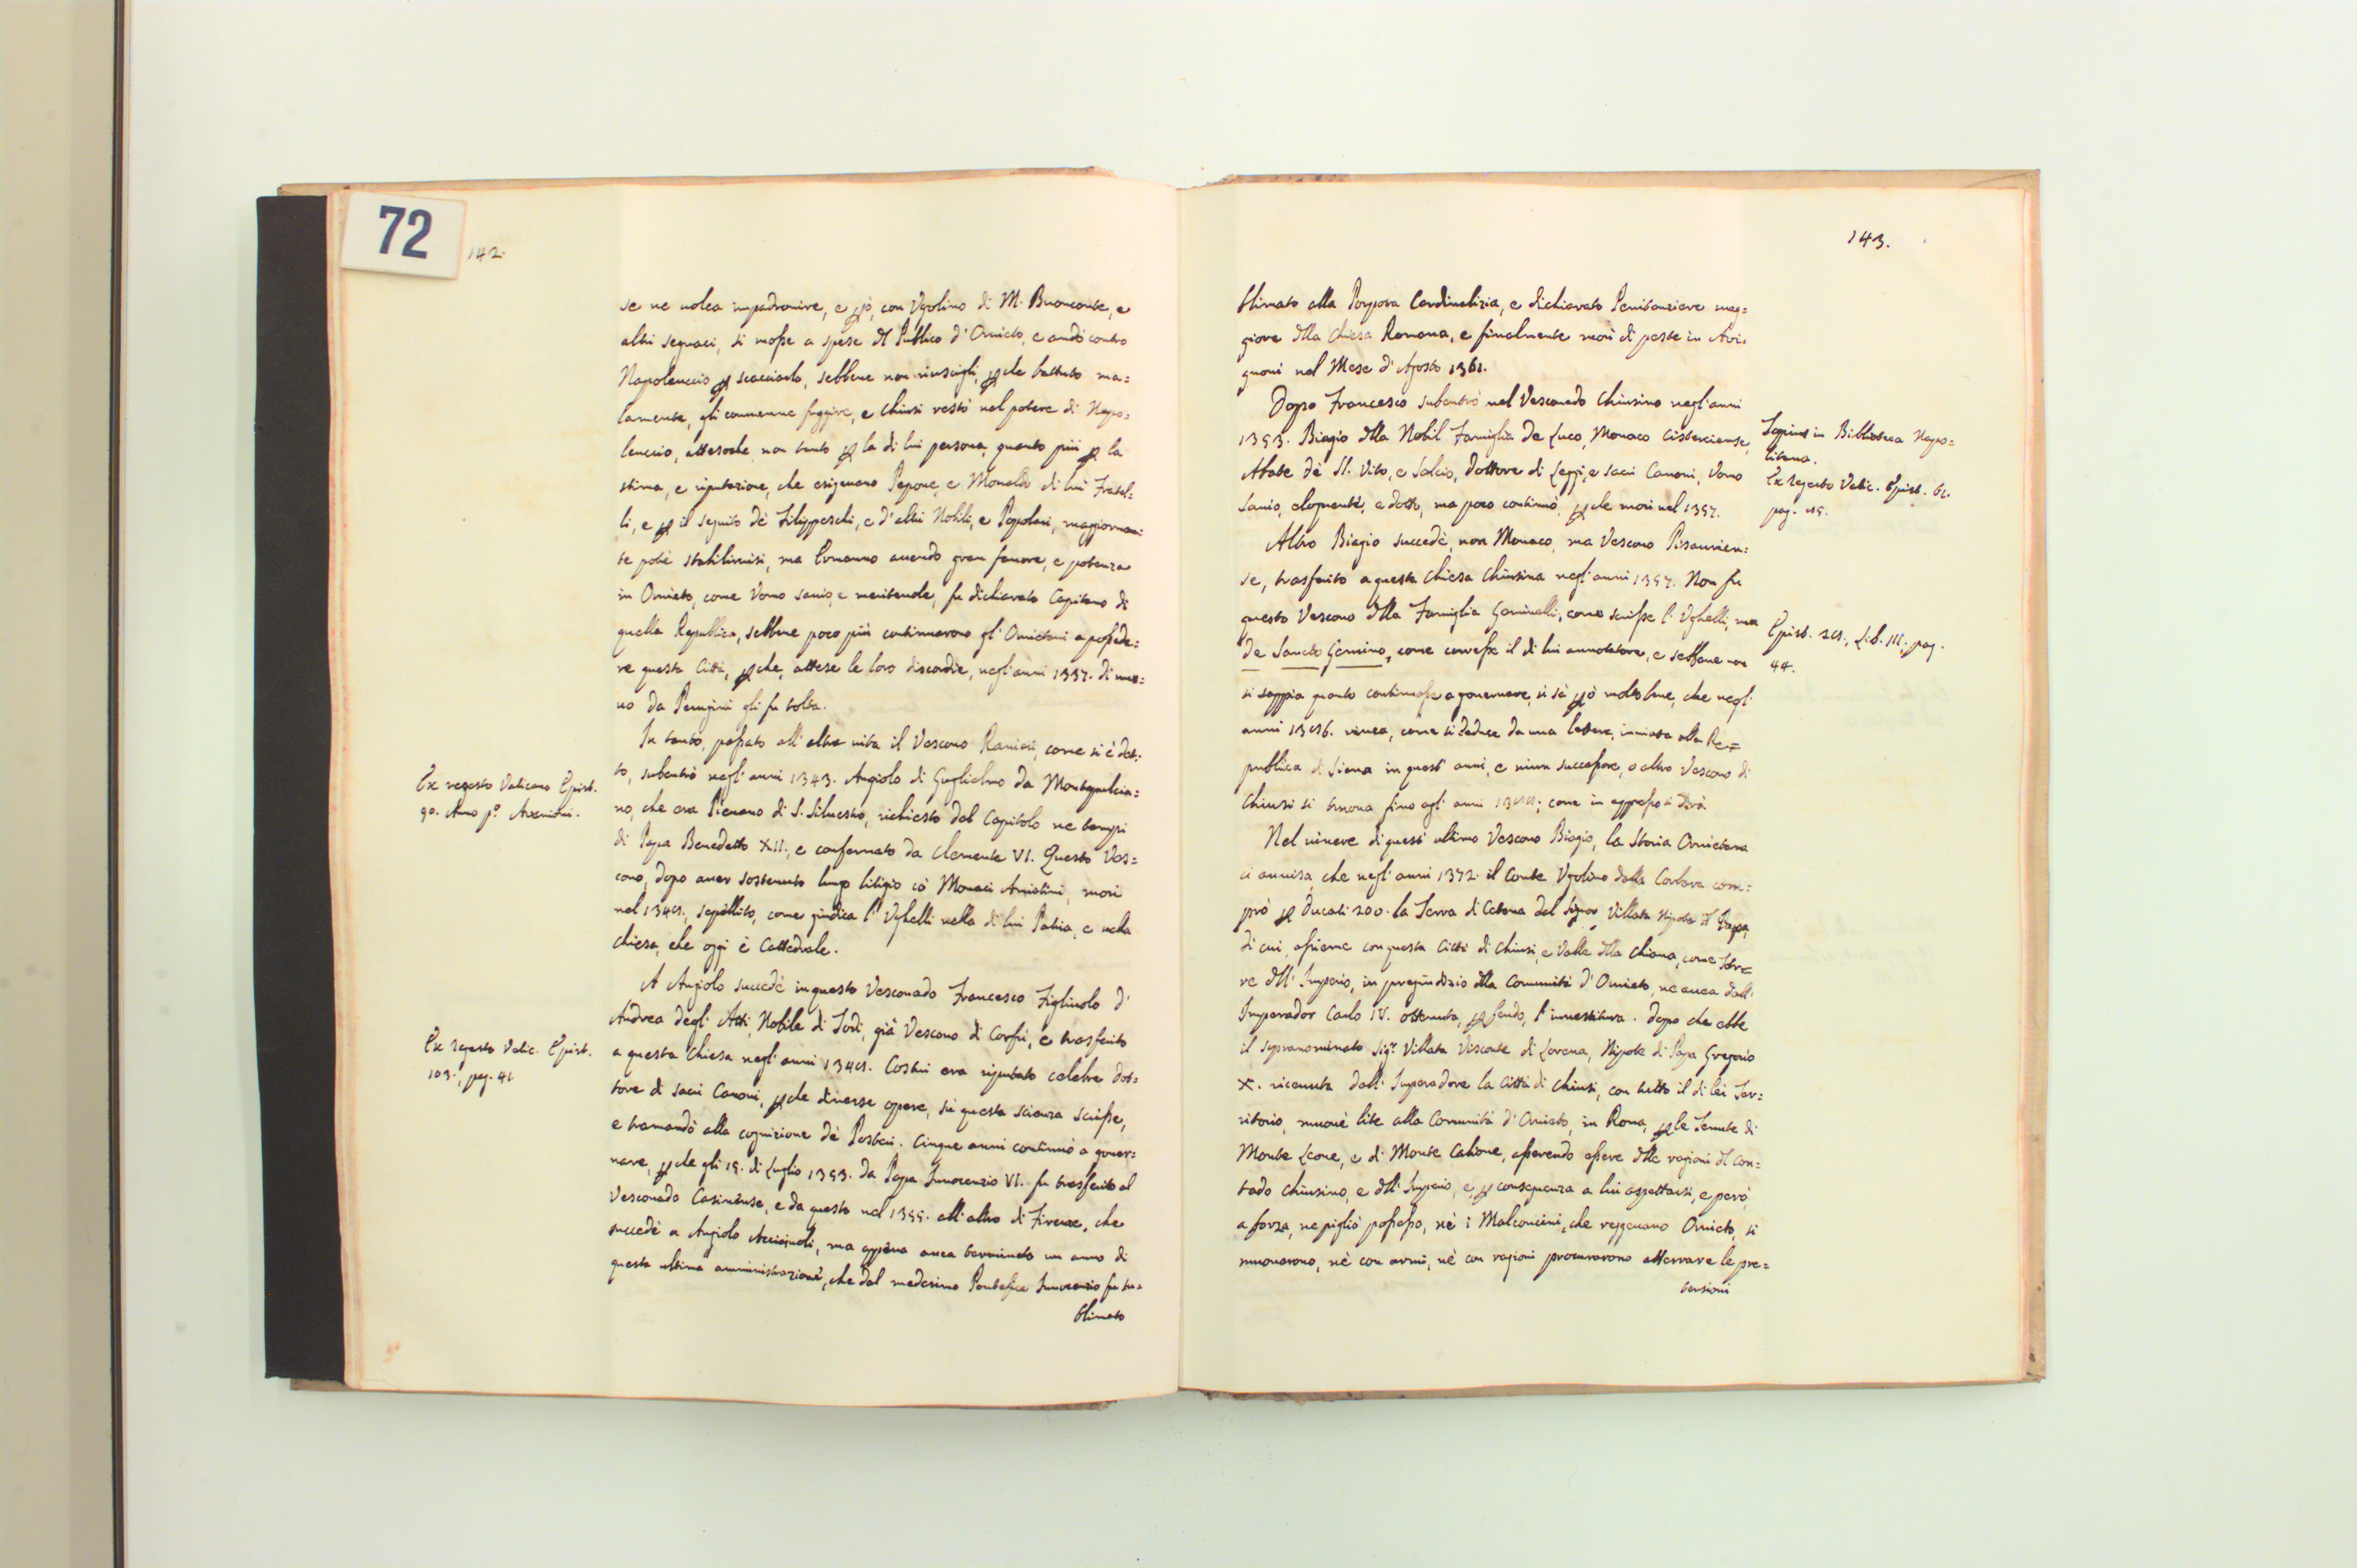 72
142.
se ne volea impadronire, e però, con Ugolino di M. Buonconte, e
altri seguaci, si mosse a spese dl Publico d'Orvieto, e andò contro
Napoleuccio per scacciarlo, sebbene non riuscigli, perche battuto ma=
lamente, gli convenne fuggire, e Chiusi restò nel potere di Napo=
leuccio, attesoche non tanto per la di lui persona, quanto più per la
stima, e riputazione, che esigevano Pepone, e Monaldo di lui Fratel=
li, e per il seguito dè Filippeschi, e d'altri Nobili, e Popolari, maggiormen=
te potè stabilirvisi, ma Ermanno avendo gran favore, e potenza
in Orvieto, come Uomo savio, e meritevole, fu dichiarato Capitano di
quella Republica, sebbene poco più continuarono gl'Orvietani a possede=
re questa Città, perche, attese le loro discordie, negl'anni 1337. di nuo=
vo da Perugini gli fu tolta.
In tanto, passato all'altra vita il Vescovo Ranieri, come si è det=
to, subentrò negl'anni 1343. Angiolo di Guglielmo da Montepulcia=
no, che era Pievano di S. Silvestro, richiesto dal Capitolo ne tempi
di Papa Benedetto XII., e confermato da Clemente VI. Questo Ves=
covo, dopo aver sostenuto lungo litigio cò Monaci Amiatini, morì
nel 1348., sepellito, come giudica l'Ughelli nella di lui Patria, e nella
Chiesa, che oggi è Cattedrale.
A Angiolo succedè in questo Vescovado Francesco Figliuolo d'
Andrea degl'Atti, Nobile di Todi, già Vescovo di Corfù, e trasferito
a questa Chiesa negl'anni 1348. Costui era riputato celebre dot=
tore di sacri Canoni, perche diverse opere, su questa scienza scrisse,
e tramandò alla cognizione dè Posteri. Cinque anni continuò a gover=
nare, perche gli 15. di Luglio 1353. da Papa Innocenzio VI. fu trasferito al
Vescovado Casinense, e da questo nel 1355. all'altro di Firenze, che
succedè a Angiolo Acciajuoli, ma appena avea terminato un anno di
questa ultima amministrazione, che dal medesimo Pontefice Innocenzio fu su=
blimato
Ex regesto Vaticano Epist.
90. Anno p.º Avenioni.
Ex regesto Vatic. Epist.
103., pag. 41.
143.
blimato alla Porpora Cardinalizia, e dichiarato Penitenziere mag=
giore dlla Chiesa Romana, e finalmente morì di peste in Avi=
gnoni nel Mese d'Agosto 1361.
Dopo Francesco subentrò nel Vescovado Chiusino negl'anni
1353. Biagio dlla Nobil Famiglia de Luco, Monaco Cisterciense,
Abate dè SS. Vito, e Salvo, dottore di Leggi, e sacri Canoni, Uomo
savio, eloquente, e dotto, ma poco continuò, perche morì nel 1357.
Altro Biagio succedè, non Monaco, ma Vescovo Pisaurien=
se, trasferito a questa Chiesa Chiusina negl'anni 1357. Non fu
questo Vescovo dlla Famiglia Geminelli, come scrisse l'Ughelli, ma
de Sancto Gemino, come corresse il di lui annotatore, e sebbene non
si sappia quanto continuasse a governare, si sà però molto bene, che negl'
anni 1386. vivea, come si deduce da una lettera, inviata alla Re=
publica di Siena in quest'anni, e niun successore, o altro Vescovo di
Chiusi si trova fino agl'anni; come in appresso si dirà.
Nel vivere di quest'ultimo Vescovo Biagio, la Storia Orvietana
ci avvisa, che negl'anni 1372. il Conte Ugolino dalla Corbara com=
prò per Ducati 200. la Terra di Cetona dal Signor Villata Nipote dl Papa,
di cui, assieme con questa Città di Chiusi, e Valle dlla Chiana, come Ter=
re dll'Imperio, in pregiudizio dlla Comunità d'Orvieto, ne avea dall'
Imperador Carlo IV. ottenuta, per feudo, l'investitura. Dopo che ebbe
il sopranominato Sig.r Villata Visconte di Lorena, Nipote di Papa Gregorio
X. ricevuta dall'Imperadore la Città di Chiusi, con tutto il di lei Ter=
ritorio, muovè lite alla Comunità d'Orvieto, in Roma, per le Tenute di
Monte Leone, e di Monte Cabione, asserendo essere dlle ragioni dl Con=
tado Chiusino, e dll'Imperio, e per conseguenza a lui aspettarsi, e però,
a forza, ne pigliò possesso, nè i Malcorini, che reggevano Orvieto, si
muoverono, nè con armi, nè con ragioni procurarono atterrare le pre=
tensioni
Toppius in Biblioteca Napo=
litana.
Ex regesto Vatic. Epist. 61.
pag.
Epist. Lib. III., pag.
44.